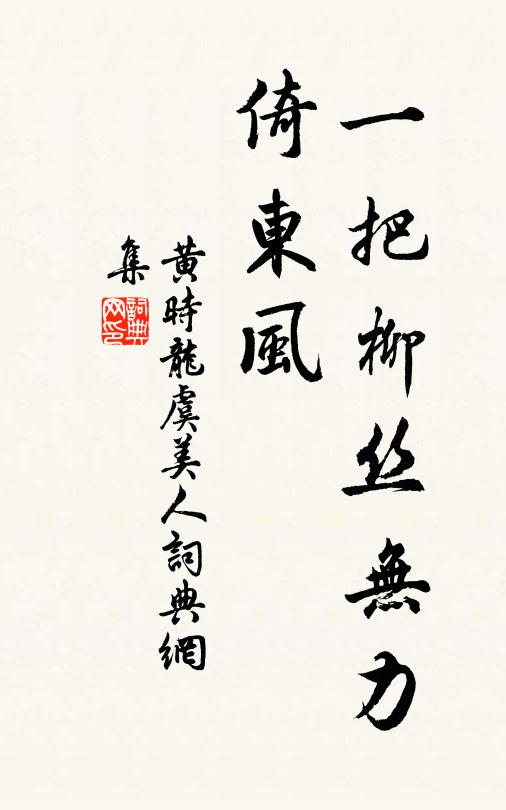 一把柳丝無力
倚東風
黄時龍虞美人詞典網
集
詞典网印